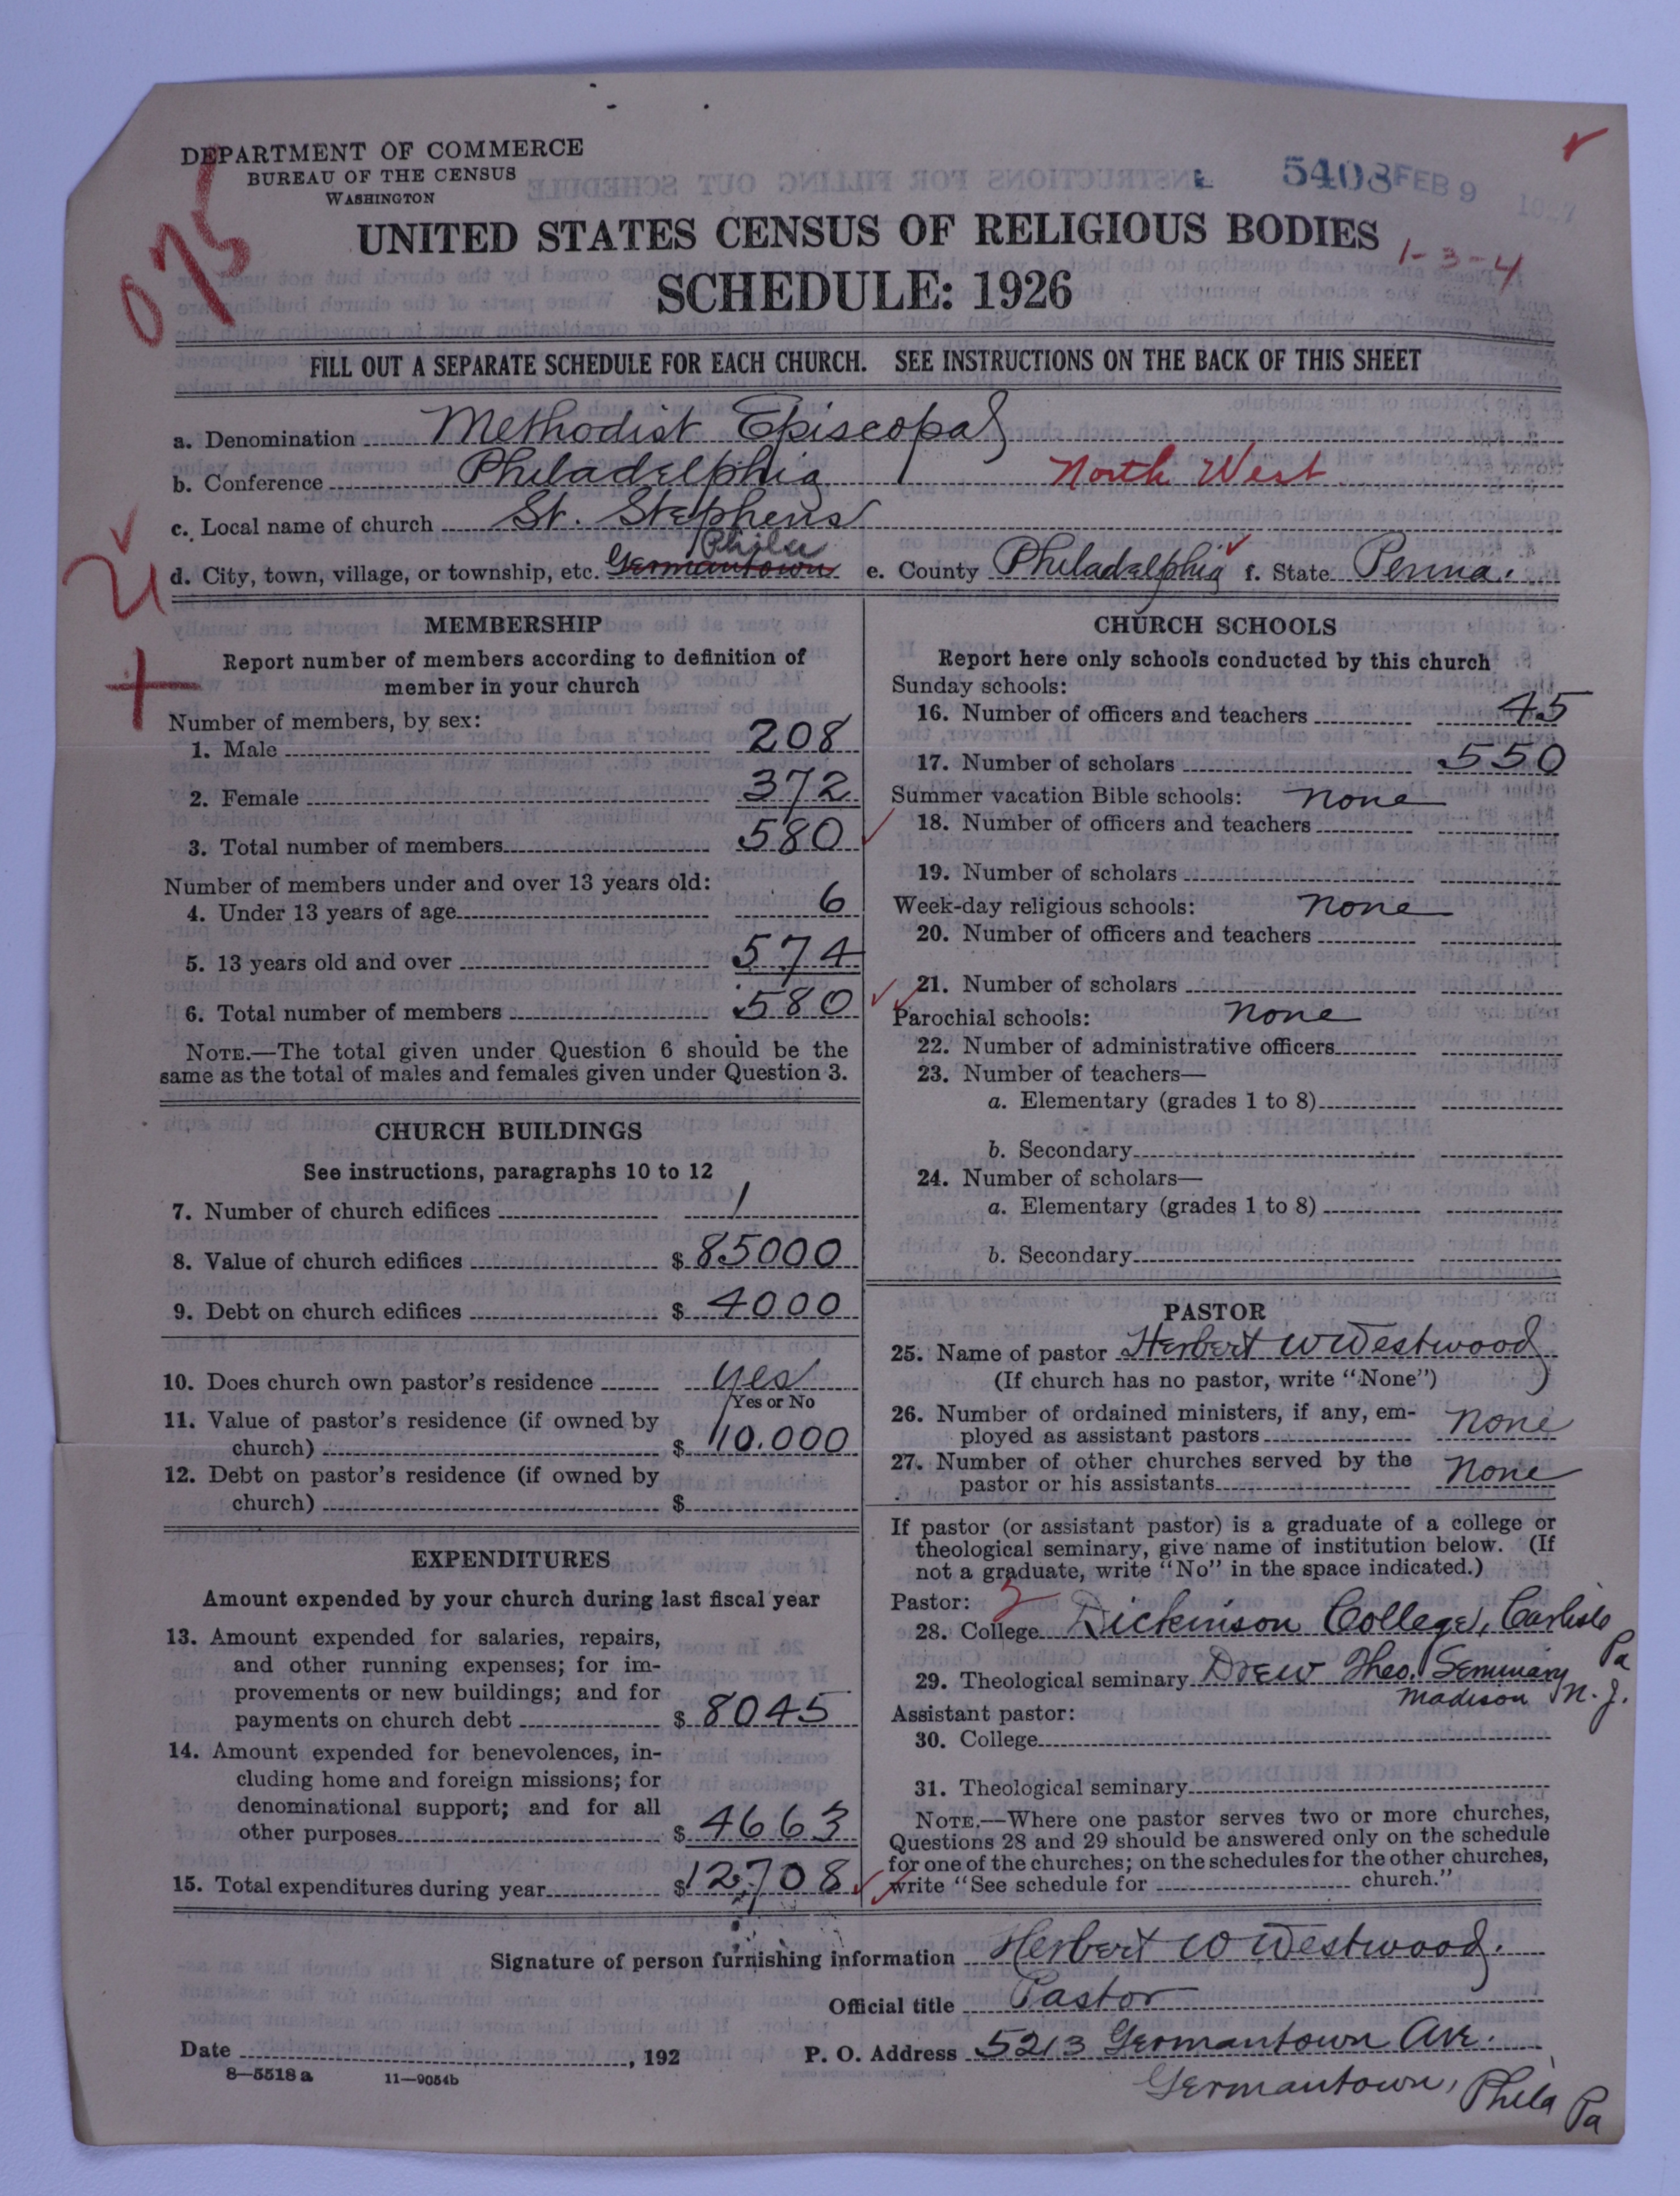 DEPARTMENT OF COMMERCE
BUREAU OF THE CENSUS
WASHINGTON
5408 FEB 9 1927
075
UNITED STATES CENSUS OF RELIGIOUS BODIES
1-3-4
SCHEDULE: 1926
FILL OUT A SEPARATE SCHEDULE FOR EACH CHURCH. SEE INSTRUCTIONS ON THE BACK OF THIS SHEET
a. Denomination Methodist Episcopal
b. Conference Philadelphia North West
c. Local name of church St. Stephens
Phila
d. City, town, village, or township, etc. Germantown e. County Philadelphia f. State Penna.
MEMBERSHIP
Report number of members according to definition of
member in your church
Number of members, by sex:
1. Male 208
2. Female 372
3. Total number of members 580
Number of members under and over 13 years old:
4. Under 13 years of age 6
5. 13 years old and over 574
6. Total number of members 580
NOTE.—The total given under Question 6 should be the
same as the total of males and females given under Question 3.
CHURCH BUILDINGS
See instructions, paragraphs 10 to 12
7. Number of church edifices 1
8. Value of church edifices $ 85000
9. Debt on church edifices $ 4000
10. Does church own pastor's residence yes
Yes or No
11. Value of pastor's residence (if owned by
church) $ 10.000
12. Debt on pastor's residence (if owned by
church) $
EXPENDITURES
Amount expended by your church during last fiscal year
13. Amount expended for salaries, repairs,
and other running expenses; for im-
provements or new buildings; and for
payments on church debt $ 8045
14. Amount expended for benevolences, in-
cluding home and foreign missions; for
denominational support; and for all
other purposes $ 4663
15. Total expenditures during year $ 12,708
CHURCH SCHOOLS
Report here only schools conducted by this church
Sunday schools:
16. Number of officers and teachers 45
17. Number of scholars 550
Summer vacation Bible schools: none
18. Number of officers and teachers
19. Number of scholars
Week-day religious schools: none
20. Number of officers and teachers
21. Number of scholars
Parochial schools: none
22. Number of administrative officers
23. Number of teachers—
a. Elementary (grades 1 to 8)
b. Secondary
24. Number of scholars—
a. Elementary (grades 1 to 8)
b. Secondary
PASTOR
25. Name of pastor Herbert W Westwood
(If church has no pastor, write "None")
26. Number of ordained ministers, if any, em-
ployed as assistant pastors none
27. Number of other churches served by the
pastor or his assistants none
If pastor (or assistant pastor) is a graduate of a college or
theological seminary, give name of institution below. (If
not a graduate, write "No" in the space indicated.)
Pastor:
28. College Dickinson College, Carlisle
Pa
29. Theological seminary Drew Theo. Seminary
Madison N. J.
Assistant pastor:
30. College
31. Theological seminary
NOTE.—Where one pastor serves two or more churches,
Questions 28 and 29 should be answered only on the schedule
for one of the churches; on the schedules for the other churches,
write "See schedule for church."
Signature of person furnishing information Herbert W Westwood.
Official title Pastor
Date , 192 P. O. Address 5213 Germantown Ave.
8—5518 a 11—9054b
Germantown, Phila Pa